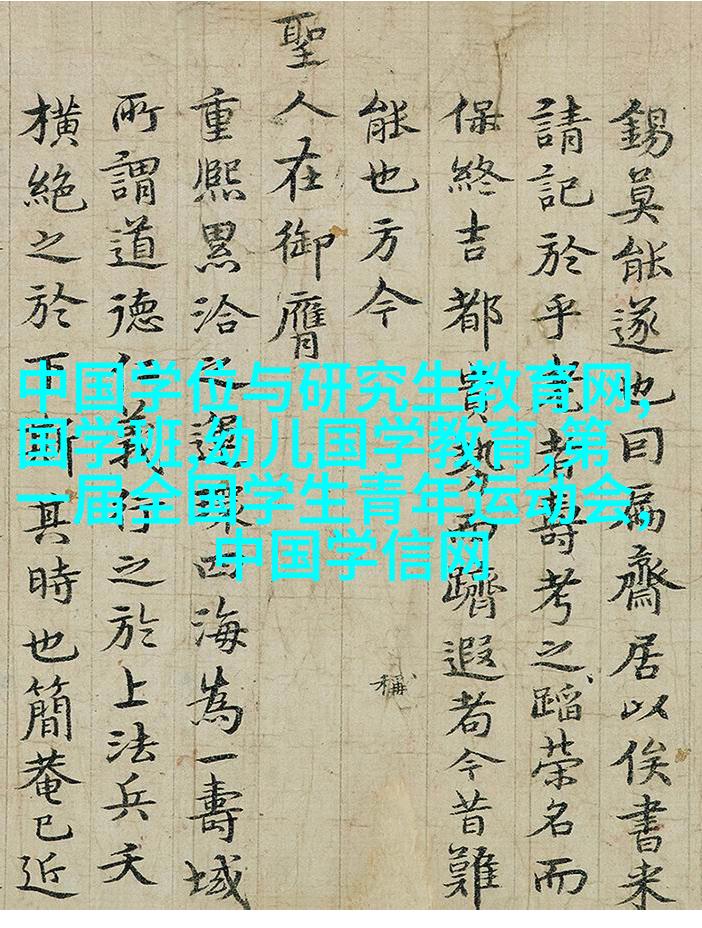 錫莫能遂也曰扁齋居以俟書来
請記於乎者壽考之蹈榮名而
保終吉都貴勢而躋遐今昔難
能也方今
稱
聖人在御膺
重熙累洽之四海為一壽域
所謂道德仁義行之於上法兵夭
橫絶之於下斯其時也簡菴已近
中国学位与研究生教育网,
国学班,幼儿国学教育,第
一届全国学生青年运动会,
中国学信网